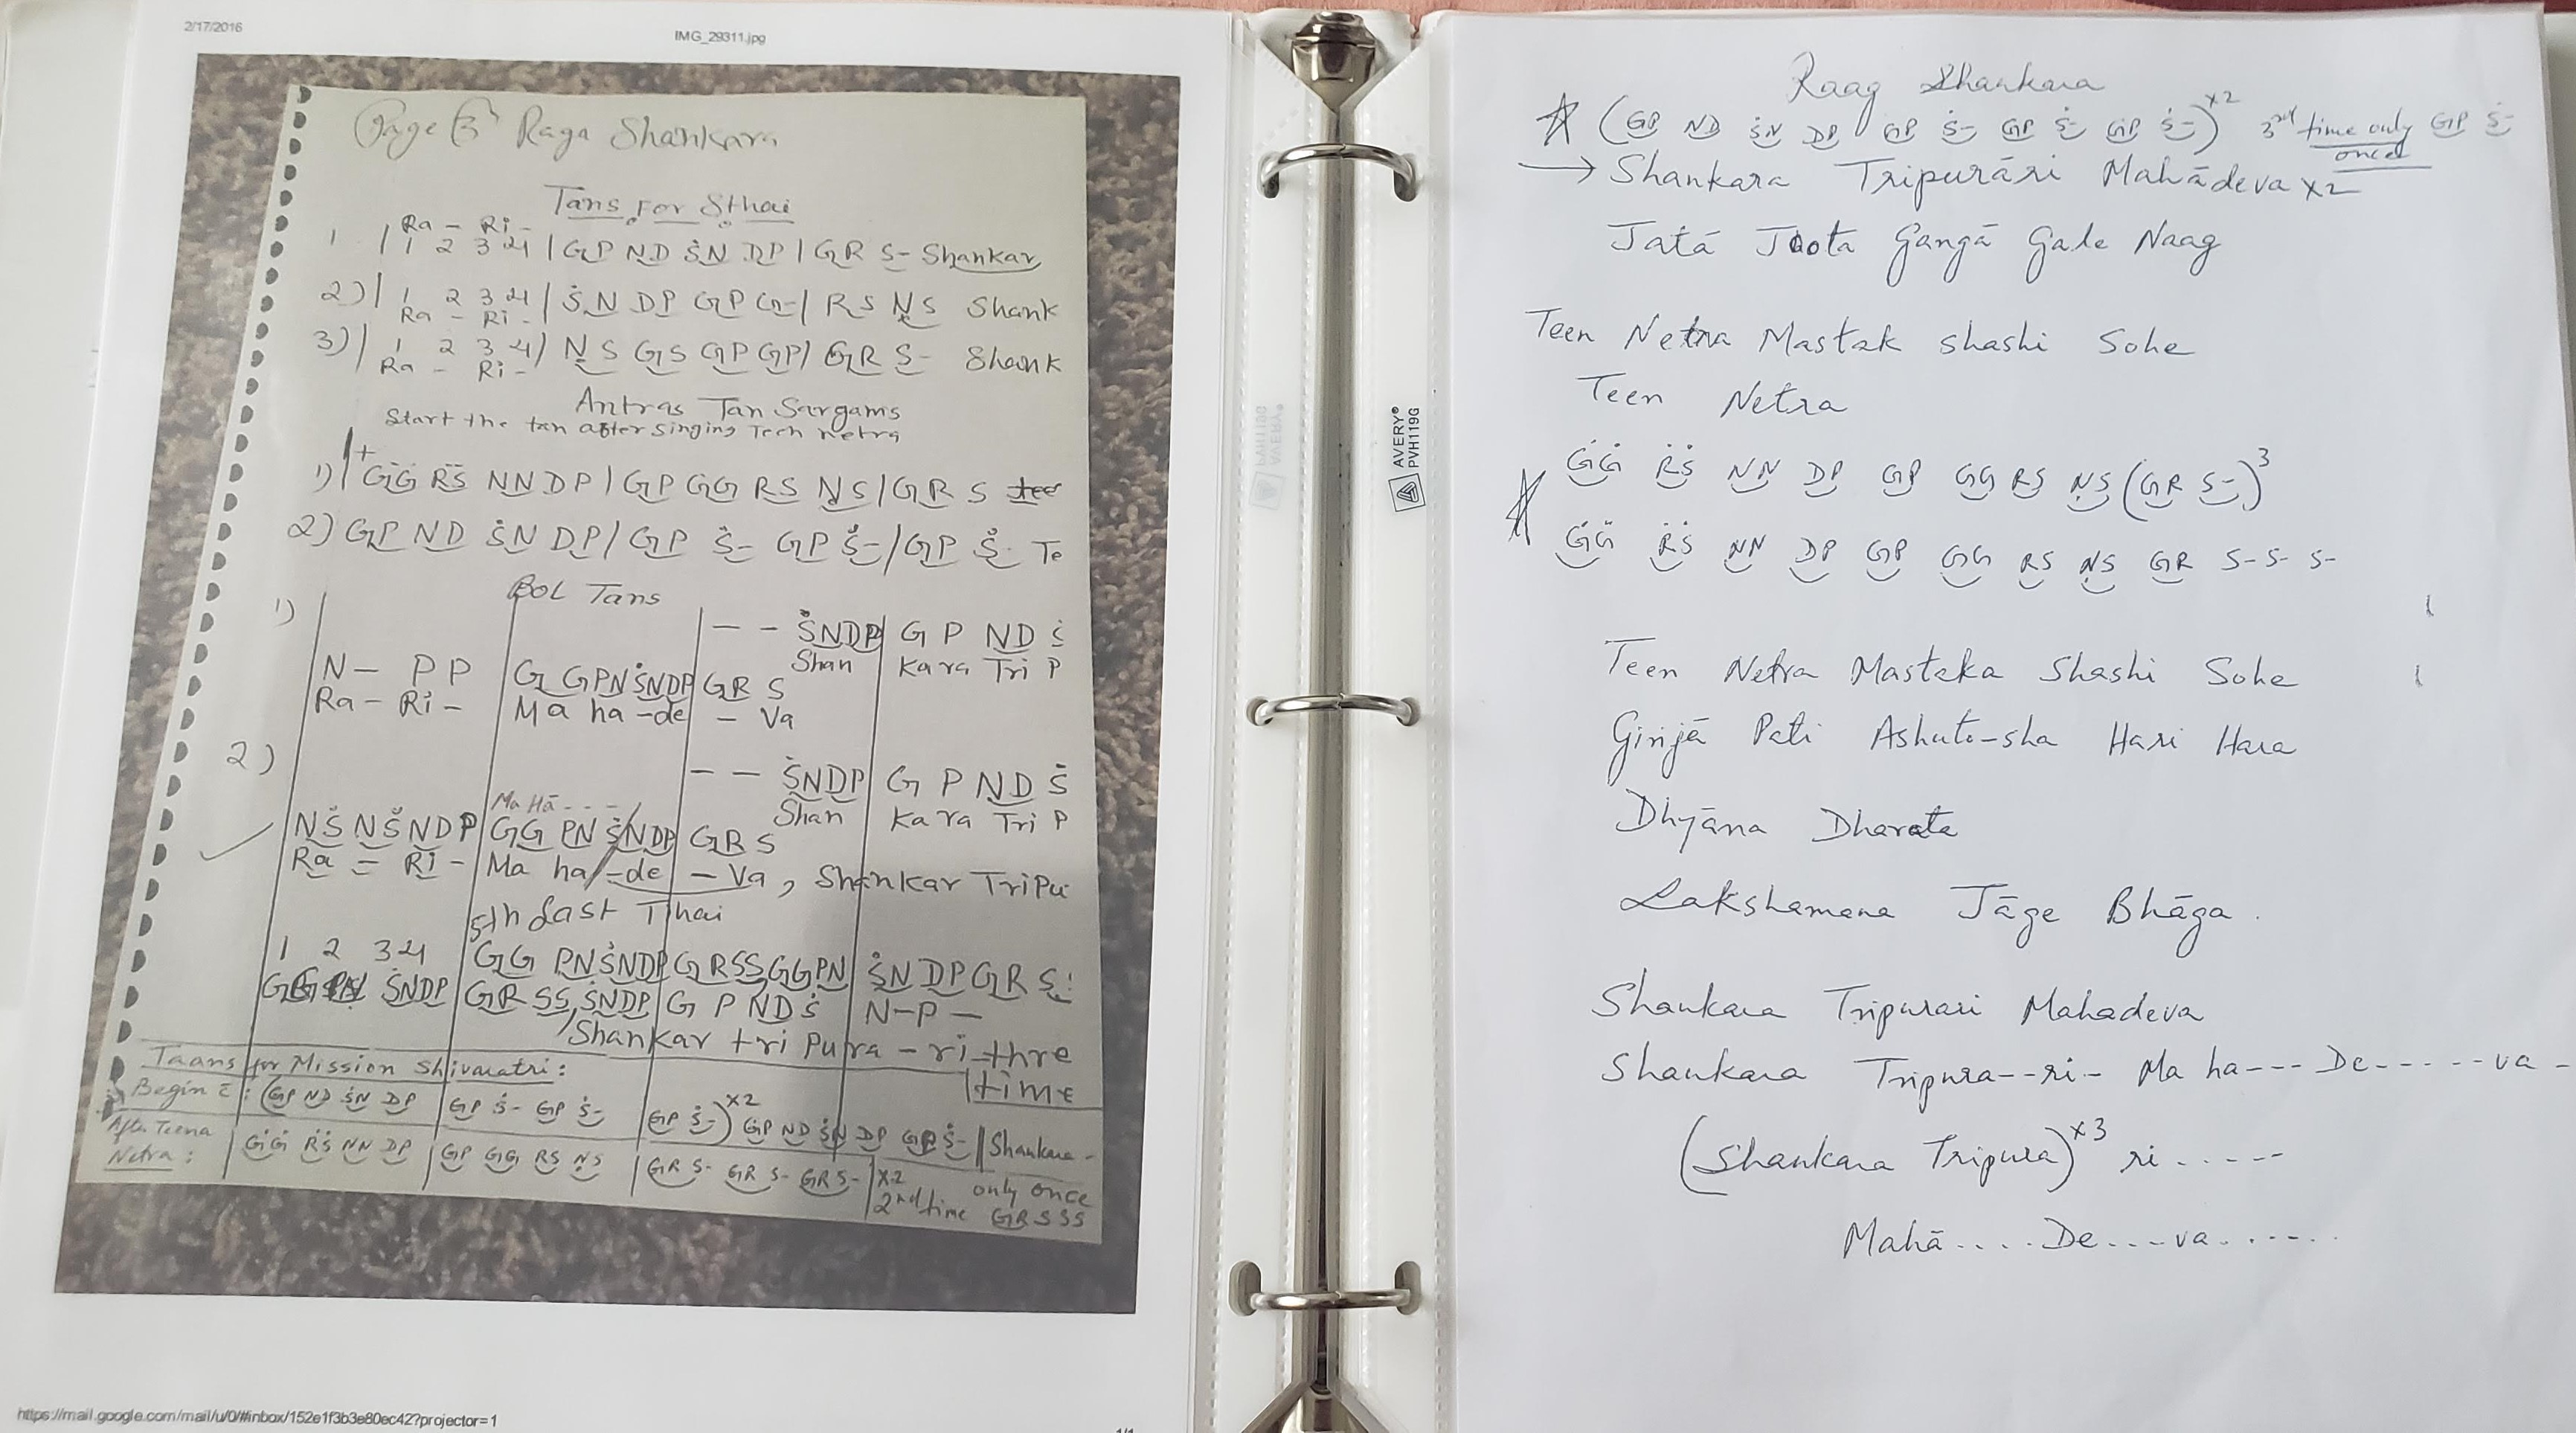 2/17/2016
IMG_29311.jpg
Page 3 Raga Shankara
Tans For Sthai
Ra - Ri -
1 | 1 2 3 4 | GP ND ṠN DP | GR S- Shankar
2) | 1 2 3 4 | ṠN DP GP G- | RS ṆS Shank
Ra - Ri -
3) | 1 2 3 4 | ṆS GS GP GP | GR S- Shank
Ra - Ri -
Antras Tan Sargams
Start the tan after singing Teen netra
1) | + ĠĠ ṘṠ NN DP | GP GG RS ṆS | GR S tee
2) GP ND ṠN DP | GP Ṡ- GP Ṡ- | GP Ṡ- Te
BOL Tans
1)
- - ṠNDP | G P ND Ṡ
Shan | Kara Tri P
N- P P | G GPN ṠNDP | GR S
Ra- Ri- | Ma ha-de | - Va
2)
- - ṠNDP | G P ND Ṡ
Shan | Kara Tri P
Ma Hā - - -
NṠ NṠ NDP | GG PN ṠNDP | GR S
Ra = Ri - | Ma ha-de | - Va, Shankar TriPu
5th Last Thai
1 2 3 4 | GG PN ṠNDP | GRSS, GGPN | ṠN DP GR S
ṠNDP | GR SS, ṠNDP | G P NDṠ | N-P-
Shankar tri Pura - ri thre
time
Taans for Mission Shivaratri:
Begin c̄: (GP ND ṠN DP | GP Ṡ- GP Ṡ- | GP Ṡ-)ˣ² GP ND ṠN DP GP Ṡ- || Shankara -
After Teena
Netra: | ĠĠ ṘṠ NN DP | GP GG RS ṆS | GR S- GR S- GR S- | x2
2nd time only once
GRSSS
https://mail.google.com/mail/u/0/#inbox/152e1f3b3e80ec42?projector=1
1/1
AVERY®
PVH119G
Raag Shankara
☆ (GP ND ṠN DP GP Ṡ- GP Ṡ- GP Ṡ-)ˣ² 3rd time only GP Ṡ-
once
→ Shankara Tripurāri Mahādeva x2
Jatá Joota Gangā Gale Naag
Teen Netra Mastak shashi Sohe
Teen Netra
ĠĠ ṘṠ NN DP GP GG RS ṆS (GR S-)³
☆ ĠĠ ṘṠ NN DP GP GG RS ṆS GR S- S- S-
Teen Netra Mastaka Shashi Sohe
Girijā Pati Ashuto-sha Hari Hara
Dhyāna Dharata
Lakshamana Jāge Bhāga.
Shankara Tripurari Mahadeva
Shankara Tripura--ri- Ma ha--- De------va -
(Shankara Tripura)ˣ³ ri -----
Mahā....De...-va......